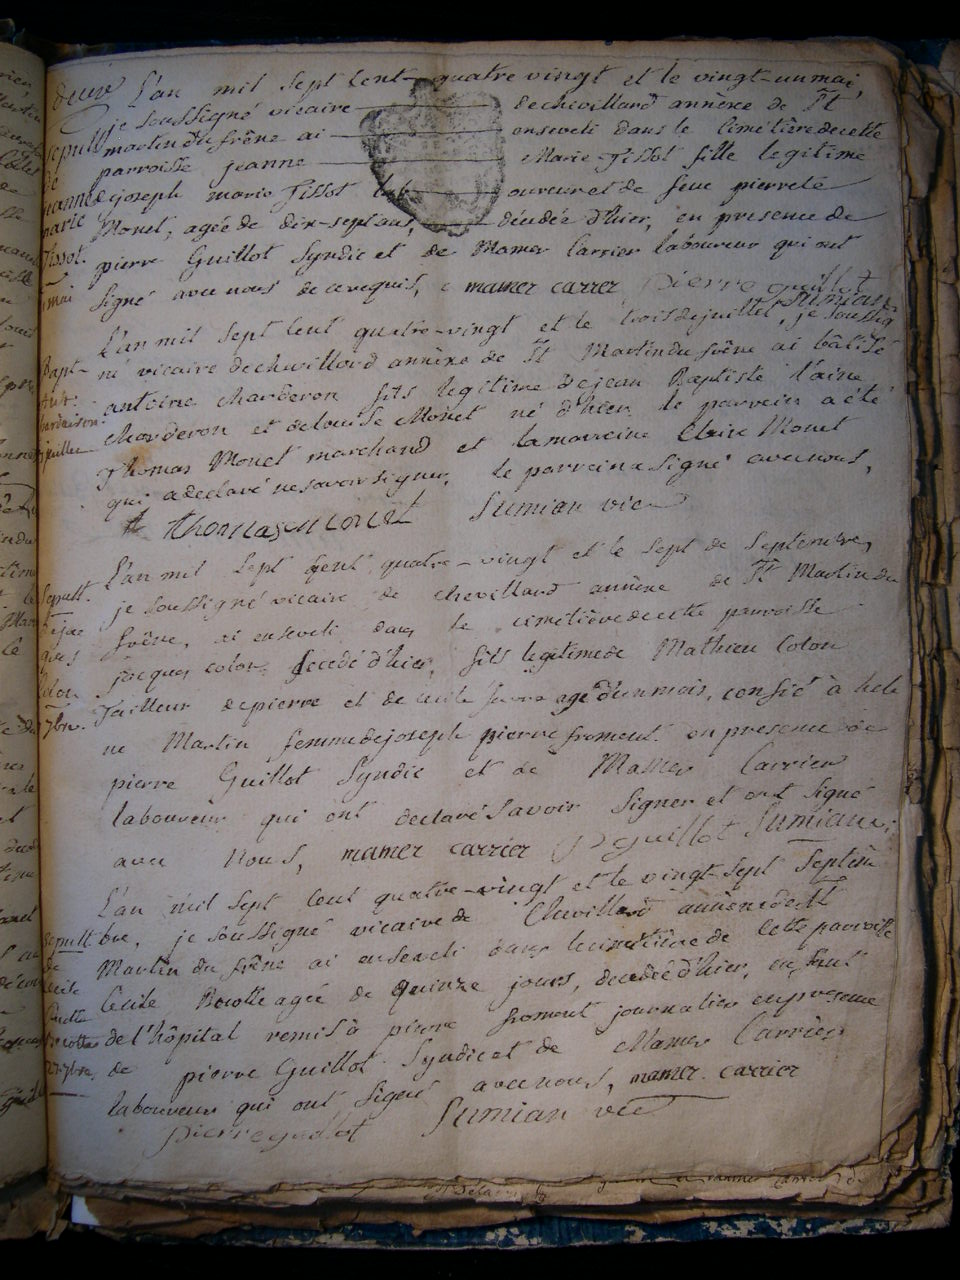 L'an mil sept cent quatre vingt et le vingt-un mai,
je soussigné vicaire de chevillard annexe de St
martin du frêne ai enseveli dans le cimetière de cette
parroisse jeanne Marie Tissot fille legitime
de joseph marie Tissot laboureur et de feue pierrete
Monet, agée de dix-sept ans, décedée d'hier, en presence de
pierre Guillot Syndic et de Mamer Carrier laboureur qui ont
signé avec nous de ce requis, mamer carrer pierre guillot
Sumian
L'an mil sept cent quatre-vingt et le trois de juillet, je soussig
né vicaire de chevillard annexe de St Martin du frêne ai bâtisé
antoine charderon fils legitime de jean Baptiste l'ainé
charderon et de louise Monet né d'hier le parrein a été
Thomas Monet marchand et la marreine Claire Monet
qui a declaré ne savoir signer, le parrein a signé avec nous,
thomas monet Sumian vic
L'an mil sept cent quatre-vingt et le sept de septembre,
je soussigné vicaire de chevillard annexe de St Martin du
frêne, ai enseveli dans le cimetière de cette parroisse
jacques colon decedé d'hier, fils legitime de Mathieu Colon
Tailleur de pierre et de agé d'un mois, confié à hele
ne Martin femme de joseph pierre froment en presence de
pierre Guillot Syndic et de Mamer Carrier
laboureur qui ont declaré savoir signer et ont signé
avec nous, mamer carrier P guillot Sumian
L'an mil sept cent quatre-vingt et le vingt-sept septem
Sepult bre, je soussigné vicaire de Chevillard annexe de St
de Martin du frêne ai enseveli dans le cimetière de cette parroisse
Cecile agée de quinze jours, decedée d'hier,
de l'hôpital remis à pierre froment journalier en presence
27 7bre. de pierre Guillot Syndic et de Mamer Carrier
laboureur qui ont signé avec nous, mamer carrier
pierre guillot Sumian vic